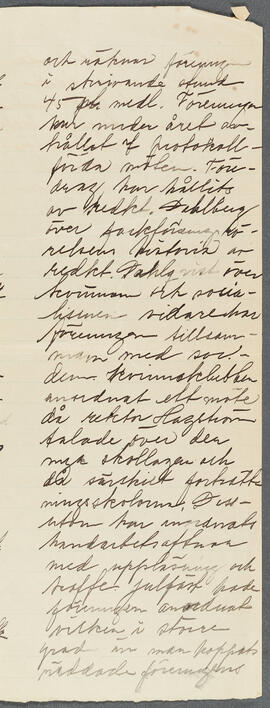 och räknar föreningen
i skrivande stund
45 medl. Föreningen
har under året av-
hållit 7 protokoll-
förda möten. Före-
drag har hållits
av redkt. Dahlberg
över fackförenings rö-
relsens historia av
redkt. Dahlqvist över
kvinnan och socia-
lismen vidare har
föreningen tillsam-
mans med soc.-
dem. Kvinnoklubben
anordnat ett möte
då rektor Hagström
talade över den
nya skollagen och
då särskilt fortsätt-
ningsskolorna. Dess-
utom har anordnats
handarbetsaftnar
med uppläsning och
kaffe. julfäst hade
föreningen anordnat
vilken i större
grad än man hoppats
räddade föreningens